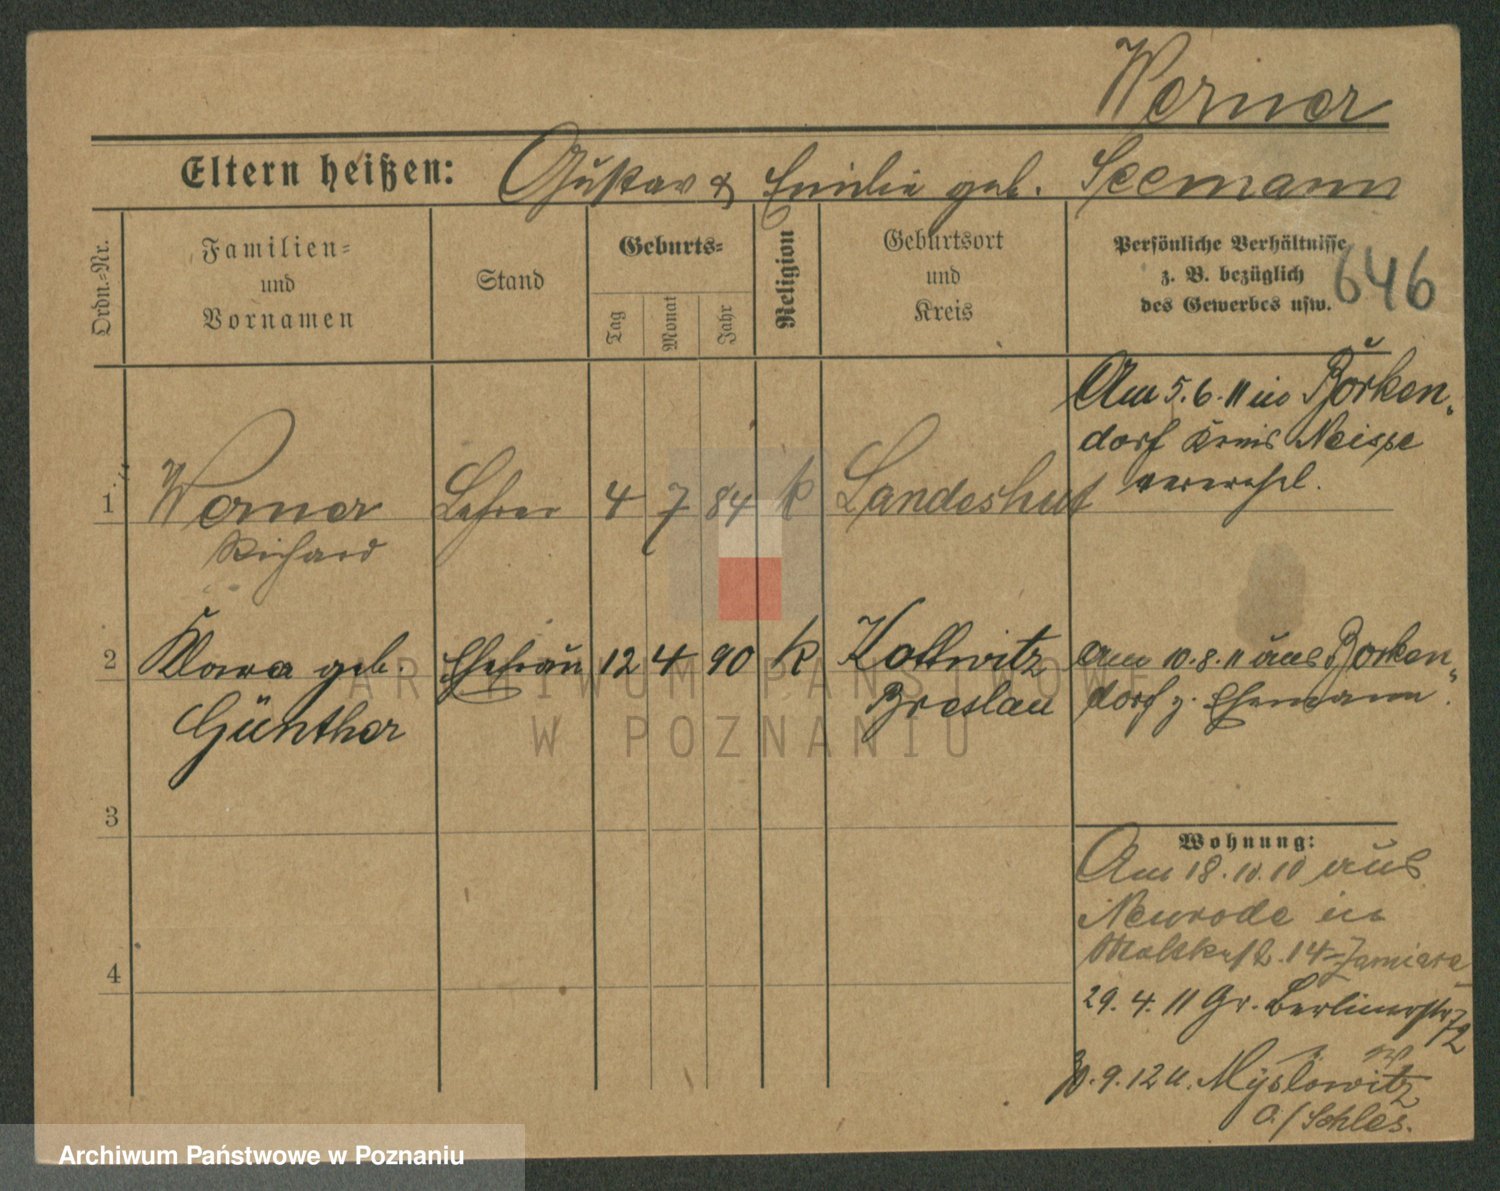 Werner
Eltern heißen: Gustav & Emilie geb. Seemann
Ordn.-Nr.
Familien-
und
Vornamen
Stand
Geburts-
Tag
Monat
Jahr
Religion
Geburtsort
und
Kreis
Persönliche Verhältnisse
z. B. bezüglich
des Gewerbes usw.
646
1 Werner Lehrer 4 7 84 k Landeshut
Richard
Am 5.6.11 in Borken-
dorf Kreis Neisse
verehel.
2 Klara geb. Ehefrau 12 4 90 k Kottwitz
Günther Breslau
Am 10.8.11 aus Borken-
dorf z. Ehemann.
3
4
Wohnung:
Am 18.10.10 aus
Neurode in
Moltkestr. 14
29.4.11 Gr. Berlinerstr 72
30.9.12 u. Myslowitz
O./Schles.
ARCHIWUM PAŃSTWOWE
W POZNANIU
Archiwum Państwowe w Poznaniu